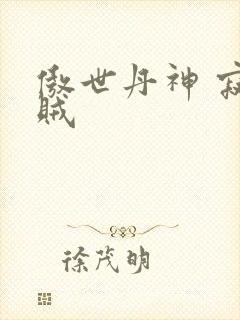 傲世丹神 寂
贼
徐茂明